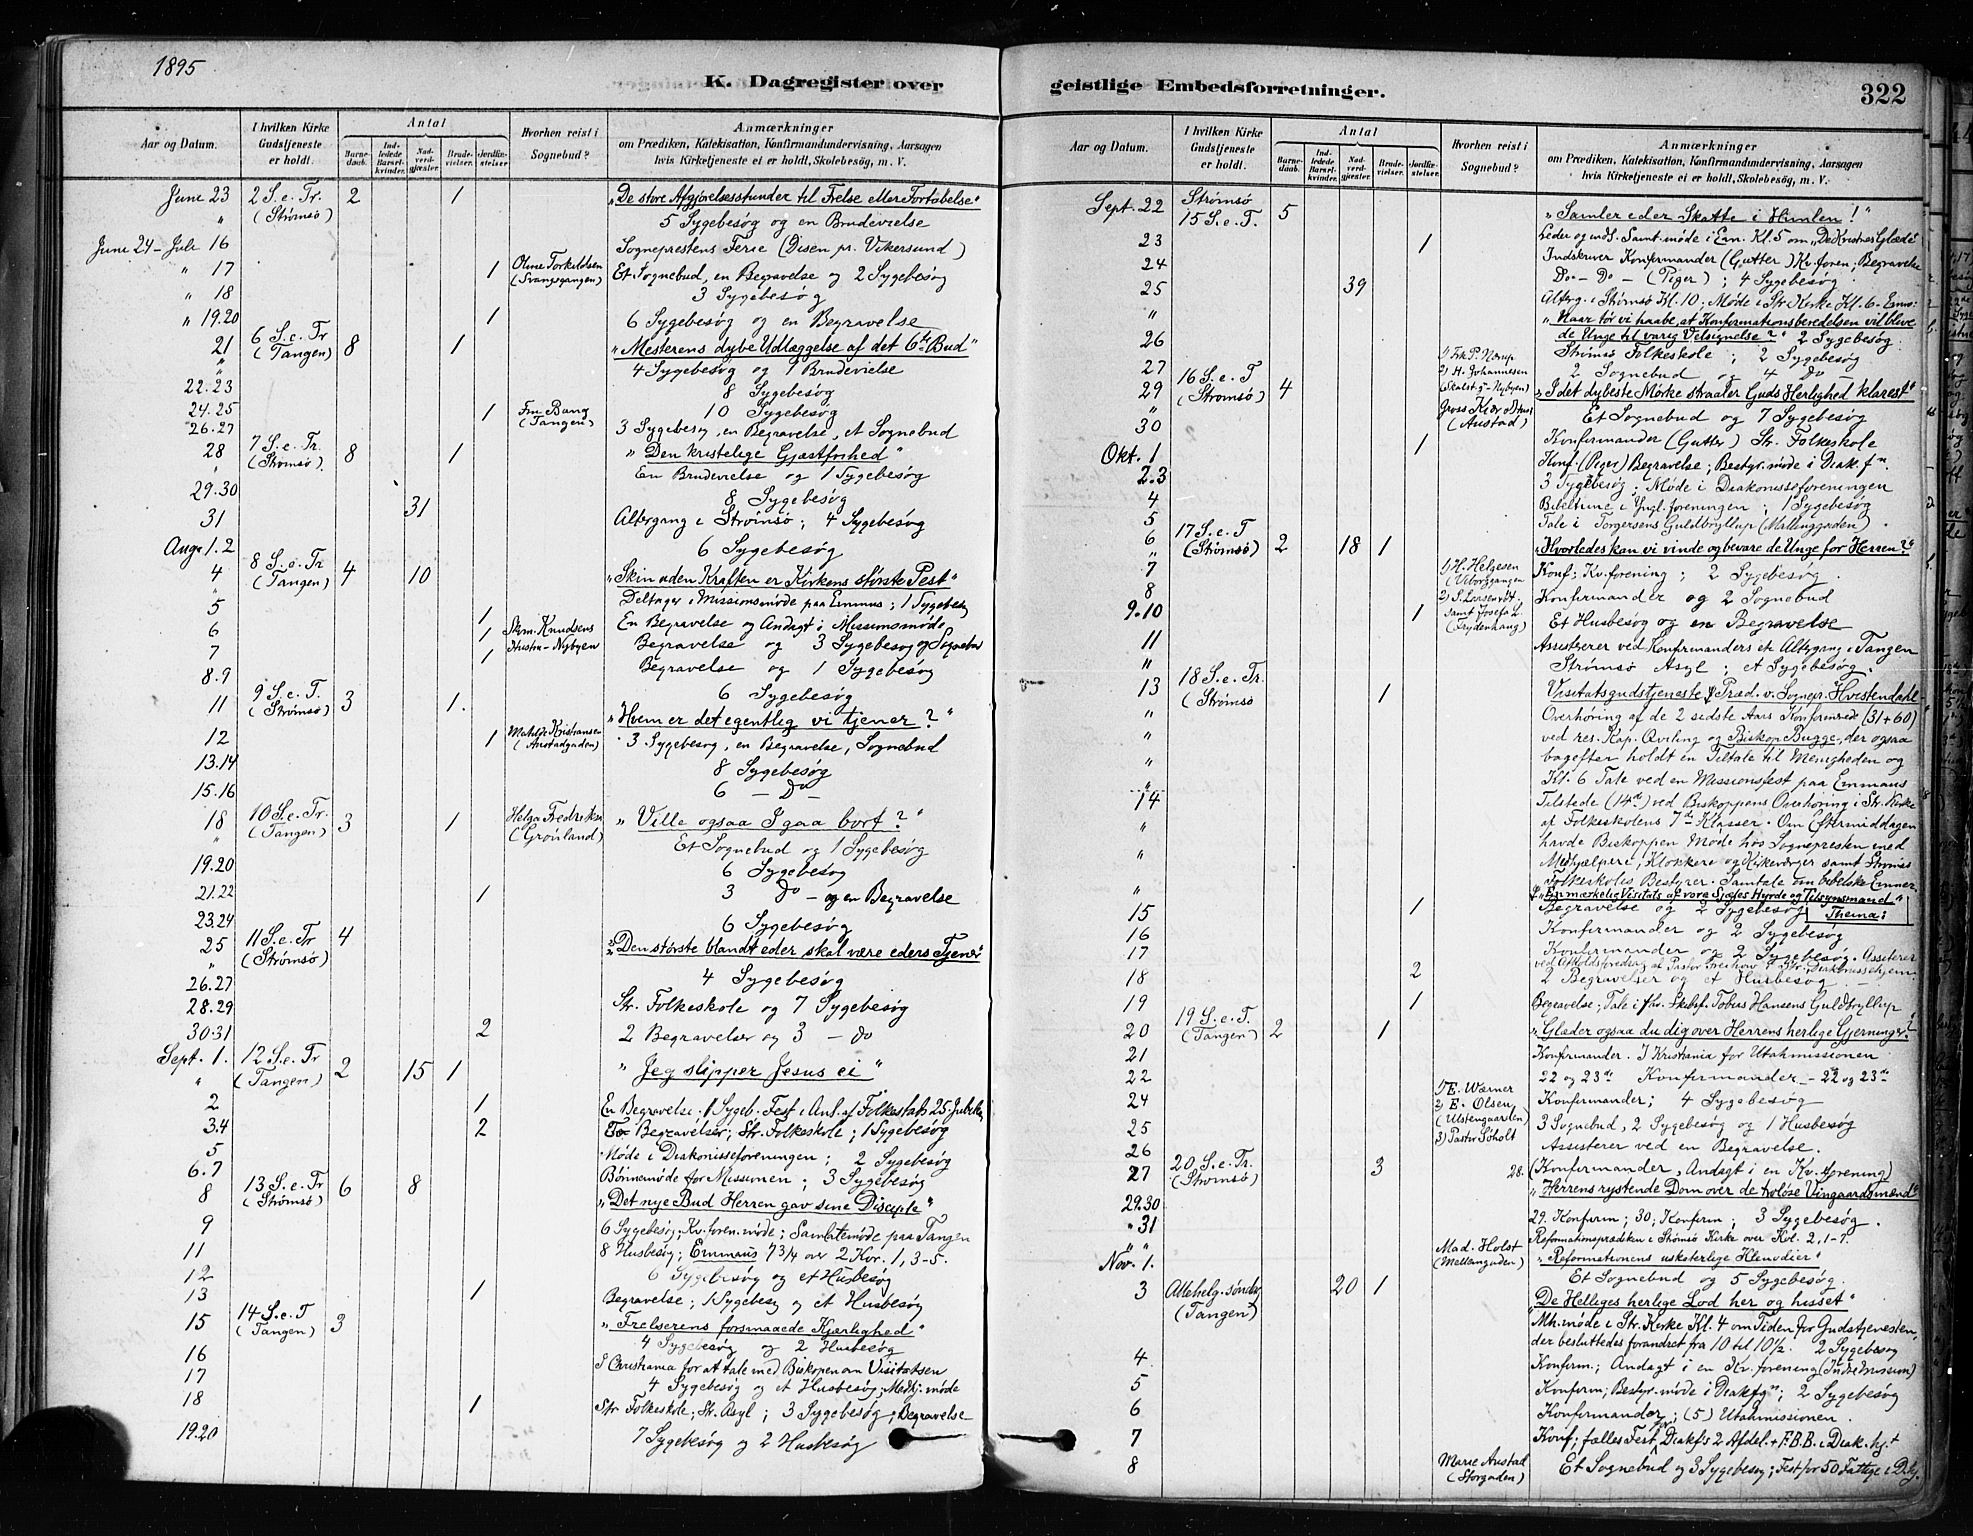 1895
K. Dagregister over
Aar og Datum.
I hvilken Kirke Gudstjeneste er holdt.
Antal
Barnedaab.
Indledede Barselkvinder.
Nadverdgjester.
Brudevielser.
Jordfæstelser
Hvorhen reist i Sognebud?
Anmærkninger
om Prædiken, Katekisation, Konfirmandundervisning, Aarsagen
hvis Kirketjeneste ei er holdt, Skolebesøg, m. V.
June 23 2 S. e. Tr. (Strømsø) 2 1 "De store Afgjørelsesstunder til Frelse eller Fortabelse"
" 5 Sygebesøg og en Brudevielse
June 24 – Juli 16 Sogneprestens Ferie (Disen pr. Vikersund)
" 17 1 Oline Torkildsen (Svangsgangen) Et Sognebud, en Begravelse og 2 Sygebesøg
" 18 3 Sygebesøg
" 19.20 1 6 Sygebesøg og en Begravelse
21 6 S. e. Tr (Tangen) 8 1 "Mesterens dybe Udlæggelse af det 6te Bud"
" 4 Sygebesøg og 1 Brudevielse
22.23 8 Sygebesøg
24.25 10 Sygebesøg
26.27 1 Fru Bang (Tangen) 3 Sygebesøg, en Begravelse, et Sognebud
28 7 S. e. Tr. (Strømsø) 8 1 "Den kristelige Gjæstfrihed"
" En Brudevielse og 1 Sygebesøg
29.30 8 Sygebesøg
31 31 Altergang i Strømsø; 4 Sygebesøg
Aug. 1.2 6 Sygebesøg
4 8 S. e. Tr (Tangen) 4 10 "Skin uden Kraften er Kirkens største Pest"
" Deltager i Missionsmøde paa Emmus; 1 Sygebesøg
5 1 En Begravelse og Andagt i Missionsmøde
6 1 Skm. Knudsens Hustru – Nybyen Begravelse og 3 Sygebesøg og Sognebud
7 1 Begravelse og 1 Sygebesøg
8.9 6 Sygebesøg
11 9 S. e. T. (Strømsø) 3 1. "Hvem er det egentlig vi tjener?"
12 1 Mathilde Kristiansen (Austadgaden) 3 Sygebesøg, en Begravelse, Sognebud
13.14 8 Sygebesøg
15.16 6 – Do –
18 10 S. e. Tr. (Tangen) 3 1 Helga Fredriksen (Grønland) "Ville ogsaa I gaa bort?"
" Et Sognebud og 1 Sygebesøg
19.20 6 Sygebesøg
21.22 1 3 Do – og en Begravelse
23.24 6 Sygebesøg
25 11 S. e. Tr (Strømsø) 4 "Den største blandt eder, skal være eders Tjener"
26.27 4 Sygebesøg
28.29 Str. Folkeskole og 7 Sygebesøg
30.31 2 2 Begravelser og 3 – do
Sept. 1. 12 S. e. Tr (Tangen) 2 15 1 "Jeg slipper Jesus ei"
2 1 En Begravelse; 1 Sygeb. Fest i Anl. af Folkestab 25. Jubilæ
3.4 2 To Begravelser; Str. Folkeskole; 1 Sygebesøg
5 Møde i Diakonisseforeningen; 2 Sygebesøg
6.7 Bønnemøde for Missionen; 3 Sygebesøg
8 13 S. e. Tr (Strømsø) 6 8 "Det nye Bud Herren gav sine Disciple"
9 6 Sygebesøg; Kv. foren. møde; Samtalemøde paa Tangen
11 8 Husbesøg; Emmaus 7 3/4 over 2 Kor. 1, 3-5.
12 6 Sygebesøg og et Husbesøg
13 1 Begravelse; 1 Sygebesøg og et Husbesøg
15 14 S. e. T (Tangen) 3 "Frelserens forsmaaede Kjærlighed"
4 Sygebesøg og 2 Husbesøg
16 I Christiania for at tale med Biskopen om Visitatsen
17 4 Sygebesøg og et Husbesøg; Medhj. møde
18 1 Str Folkeskole; Str. Asyl; 3 Sygebesøg; Begravelse
19.20 7 Sygebesøg og 2 Husbesøg
geistlige Embedsforretninger.
322
Aar og Datum.
I hvilken Kirke Gudstjeneste er holdt.
Antal
Barnedaab.
Indledede Barselkvinder.
Nadverdgjester.
Brudevielser.
Jordfæstelser.
Hvorhen reist i Sognebud?
Anmærkninger
om Prædiken, Katekisation, Konfirmandundervisning, Aarsagen
hvis Kirketjeneste ei er holdt, Skolebesøg, m. V.
Sept. 22 Strømsø 15 S. e. T. 5 "Samler eder Skatte i Himlen!"
23 1 Leder og indl. Samt. møde i Em. Kl. 5 om "De Kristnes Glæde"
24 Indskriver Konfirmander (Gutter) Kv. foren; Begravelse
25 39 Do – Do (Piger); 4 Sygebesøg
" Alterg. i Strømsø Kl. 10; Møde i Str Kirke Kl. 6 – Emne:
"Naar tør vi haabe, at Konfirmationsberedelsen vil blive
26 de Unge til varig Velsignelse?" 2 Sygebesøg
Strømsø Folkeskole; 2 Sygebesøg
27 1) Frk P. Nærup 2) H. Johannesen (Skalst.g – Nybyen) 2 Sognebud og 4 do
29 16 S. e. T (Strømsø) 4 "I det dybeste Mørke straaler Guds Herlighed klarest"
" Gross Kiær (Austad) Et Sognebud og 7 Sygebesøg
30 Konfirmander (Gutter) Str. Folkeskole
Okt. 1 1 Konf. (Piger) Begravelse; Bestyr. møde i Diak. fn.
2.3 3 Sygebesøg; Møde i Diakonisseforeningen
4 Bibeltime i Yngl. foreningen; 1 Sygebesøg
5 Tale i Torgersens Guldbryllup (Mallinggaden)
6 17 S. e. T (Strømsø) 2 18 1 "Hvorledes kan vi vinde og bevare de Unge for Herren?"
7 1) H. Helgesen (Viborggangen Konf; Kv. forening; 2 Sygebesøg.
8 2) S. Larsen samt Josefa L. (Frydenhaug) Konfirmander og 2 Sognebud
9.10 1 Et Husbesøg og en Begravelse
11 Assisterer ved Konfirmanders et Altergang i Tangen
" Strømsø Asyl; et Sygebesøg.
13 18 S. e. Tr. (Strømsø 1 Visitatsgudstjeneste Præd. v. Sognepr. Hvistendahl –
" Overhøring af de 2 sidste Aars Konfirmrede (31+60)
" ved res. Kap. Qviling og Biskop Bugge, der ogsaa
" bagefter holdt en Tiltale til Menigheden og
" Kl. 6 Tale ved en Missionsfest paa Emmaus
14 Tilstede (14de) ved Biskoppens Overhøring i Str. Kirke
" af Folkeskolens 7de Klasser. Om Eftermiddagen
" havde Biskoppen Møde hos Sognepresten med
Medhjælpere, Klokkere og Kirkeværger samt Strømsø
" Folkeskoles Bestyrer. Samtale om bibelske Emner.
"En mærkelig Visitats af vore Sjæles Hyrde og Tilsynsmand"
15 1 Begravelse og 2 Sygebesøg Thema:
16 Konfirmander og 2 Sygebesøg
17 Konfirmander og 2 Sygebesøg. Assisterer
ved Afholdsforedrag af Pastor i Str. Diakonissehjem
18 2 2 Begravelser og et Husbesøg
19 1 Begravelse; Tale i fhv. Skibsf. Tobias Hansens Guldbryllup
20 19 S. e. T. (Tangen) 2 1 "Glæder ogsaa du dig over Herrens herlige Gjerninger?"
21 Konfirmander. I Kristiania for Utahmissionen
22 22 og 23de Konfirmander – 22 og 23de
24 1) E. Wærner 2) E. Olsen (Ulstengaarden) 3) Pastor Søholt Konfirmander; 4 Sygebesøg
25 3 Sognebud, 2 Sygebesøg og 1 Husbesøg
26 Assisterer ved en Begravelse.
27 20 S. e. Tr. (Strømsø) 3 28. (Konfirmander, Andagt i en Kv. forening)
"Herrens rystende Dom over de troløse Vingaardsmænd"
29.30 29. Konfirm; 30; Konfirm; 3 Sygebesøg.
" 31 Reformationsprædiken i Strømsø Kirke over Kol. 2, 1-7.
" " Mad. Holst (Mellangaden) "Reformationens uskaterlige Klenodier"
Nov. 1. Et Sognebud og 5 Sygebesøg.
3 Allehelg. søndag (Tangen) 20 1 De Helliges herlige Lod her og hisset"
Mh. møde i Str. Kirke Kl. 4 om Tiden for Gudstjenesten,
der besluttedes forandret fra 10 til 10½. 2 Sygebesøg
4 Konfirm.; Andagt i en Kv. forening (Indremission)
5 Konfirm; Bestyr. møde i Diakfgn; 2 Sygebesøg
6 Konfirmander; (5) Utahmissionen.
7 Konf; fælles Fest for Diakfs 2 Afdel. + F.B.B. i Diak. hj.
8 Marie Austad (Storgaden) Et Sognebud og 3 Sygebesøg; Fest for 50 Fattige i Dhj.